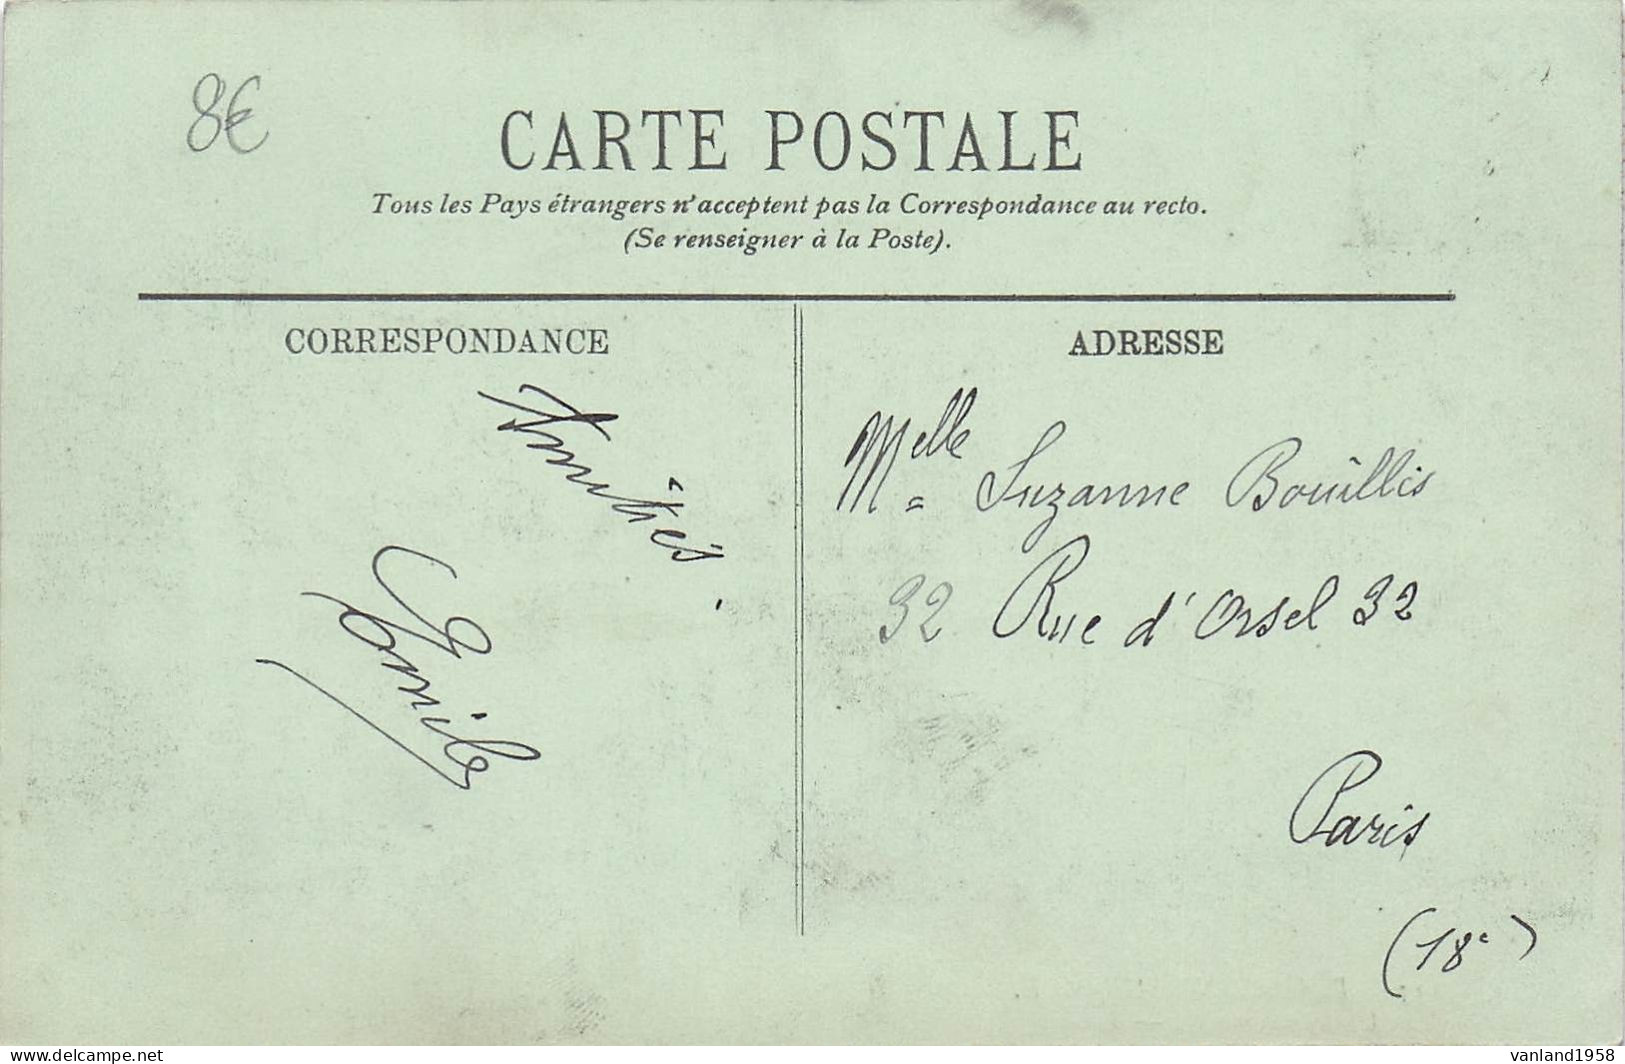 8€
CARTE POSTALE
Tous les Pays étrangers n'acceptent pas la Correspondance au recto.
(Se renseigner à la Poste).
CORRESPONDANCE
Amitiés
Emile
ADRESSE
Melle Suzanne Bouillis
32 Rue d'Orsel 32
Paris
(18e)
delcampe.net
vanland1958